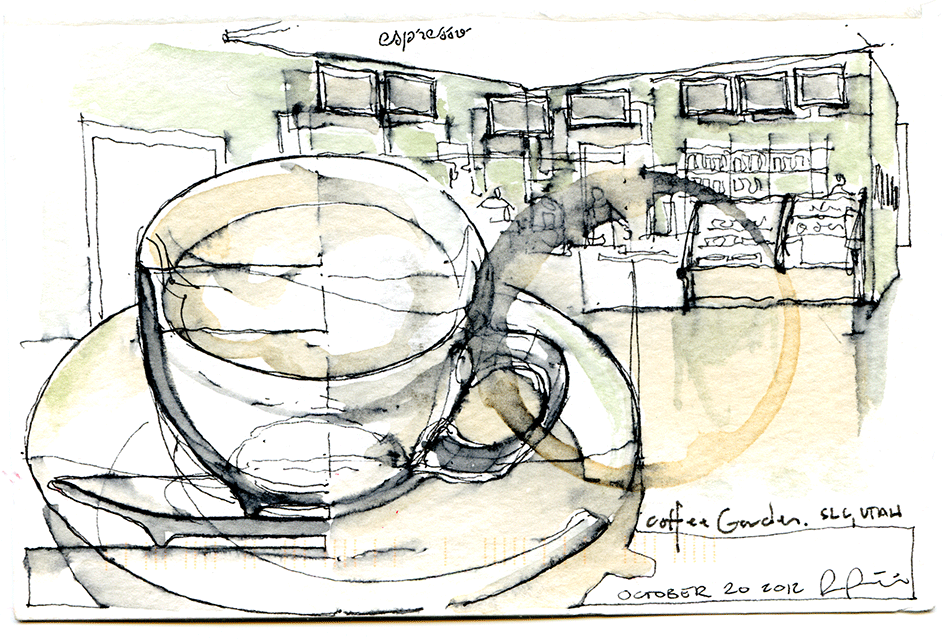 espresso
coffee Garden. SLC, UTAH
OCTOBER 20 2012